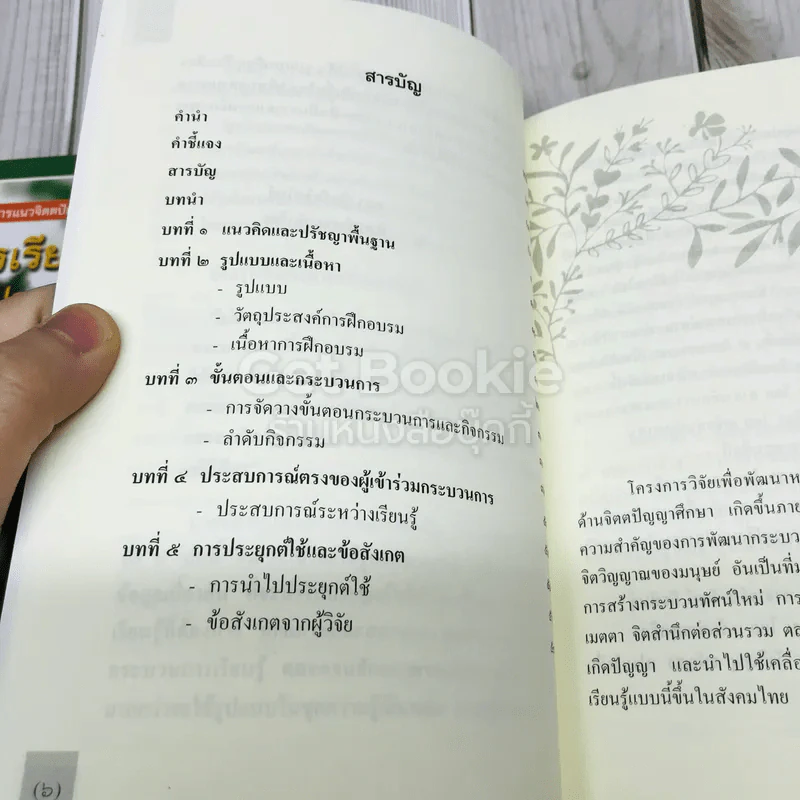 สารบัญ
คำนำ
คำชี้แจง
สารบัญ
บทนำ
บทที่ ๑ แนวคิดและปรัชญาพื้นฐาน
บทที่ ๒ รูปแบบและเนื้อหา
- รูปแบบ
- วัตถุประสงค์การฝึกอบรม
- เนื้อหาการฝึกอบรม
บทที่ ๓ ขั้นตอนและกระบวนการ
- การจัดวางขั้นตอนกระบวนการและกิจกรรม
- ลำดับกิจกรรม
บทที่ ๔ ประสบการณ์ตรงของผู้เข้าร่วมกระบวนการ
- ประสบการณ์ระหว่างเรียนรู้
บทที่ ๕ การประยุกต์ใช้และข้อสังเกต
- การนำไปประยุกต์ใช้
- ข้อสังเกตจากผู้วิจัย
(๖)
Get Bookie
ร้านหนังสือบุ๊กกี้
โครงการวิจัยเพื่อพัฒนาห
ด้านจิตตปัญญาศึกษา เกิดขึ้นภาย
ความสำคัญของการพัฒนากระบว
จิตวิญญาณของมนุษย์ อันเป็นที่ม
การสร้างกระบวนทัศน์ใหม่ การ
เมตตา จิตสำนึกต่อส่วนรวม ตล
เกิดปัญญา และนำไปใช้เคลื่อ
เรียนรู้แบบนี้ขึ้นในสังคมไทย
ารแนวจิตตปั
รเรีย